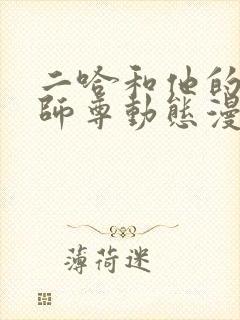 二哈和他的
師尊動態漫
薄荷迷